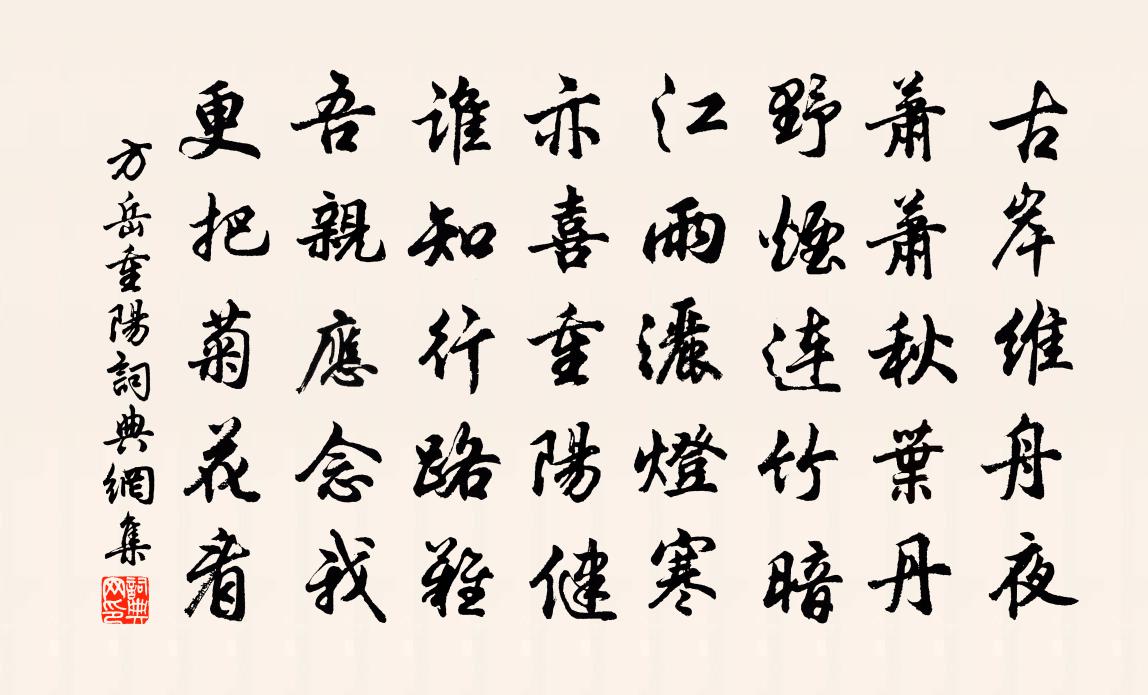 古岸維舟夜
蕭蕭秋葉丹
野煙連竹暗
江雨灑燈寒
亦喜重陽健
誰知行路難
吾親應念我
更把菊花看
方岳重陽詞典網集
詞典網印